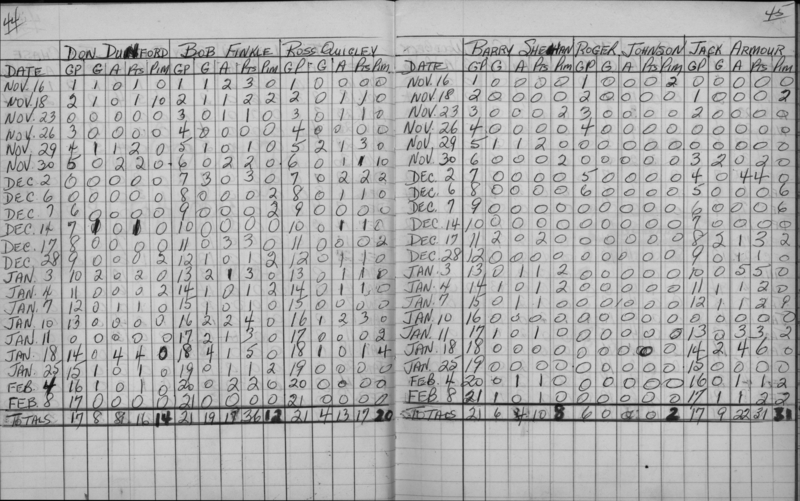 44
DON DUNFORD BOB FINKLE ROSS QUIGLEY
DATE GP G A Pts Pim GP G A Pts Pim GP G A Pts Pim
NOV. 16 1 1 0 1 0 1 1 2 3 0 1 0 0 0 0
NOV. 18 2 1 0 1 10 2 1 1 2 2 2 0 1 1 0
NOV. 23 0 0 0 0 0 3 0 1 1 0 3 0 1 1 0
NOV. 26 3 0 0 0 0 4 0 0 0 0 4 0 0 0 0
NOV. 29 4 1 1 2 0 5 1 0 1 0 5 2 1 3 0
NOV. 30 5 0 2 2 0 6 0 2 2 0 6 0 1 1 10
DEC. 2 0 0 0 0 0 7 3 0 3 0 7 0 2 2 2
DEC. 6 0 0 0 0 0 8 0 0 0 2 8 0 1 1 0
DEC. 7 6 0 0 0 0 9 0 0 0 2 9 0 0 0 0
DEC. 14 7 1 0 1 0 10 0 0 0 0 10 0 1 1 0
DEC. 17 8 0 0 0 0 11 0 3 3 0 11 0 0 0 2
DEC. 28 9 0 0 0 2 12 1 0 1 2 12 0 1 1 0
JAN. 3 10 2 0 2 0 13 2 1 3 0 13 0 1 1 0
JAN. 4 11 0 0 0 2 14 1 0 1 2 14 0 1 1 0
JAN. 7 12 0 1 1 0 15 1 0 1 0 15 0 0 0 0
JAN. 10 13 0 0 0 0 16 2 2 4 0 16 1 2 3 0
JAN. 11 0 0 0 0 0 17 2 1 3 0 17 0 0 0 2
JAN. 18 14 0 4 4 0 18 4 1 5 0 18 1 0 1 4
JAN. 25 15 1 0 1 0 19 0 1 1 2 19 0 0 0 0
FEB. 4 16 1 0 1 0 20 0 2 2 0 20 0 0 0 0
FEB. 8 17 0 0 0 0 21 0 0 0 0 21 0 0 0 0
TOTALS 17 8 8 16 14 21 19 17 36 12 21 4 13 17 20
45
BARRY SHEEHAN ROGER JOHNSON JACK ARMOUR
DATE GP G A Pts Pim GP G A Pts Pim GP G A Pts Pim
NOV. 16 1 0 0 0 0 1 0 0 0 2 0 0 0 0 0
NOV. 18 2 0 0 0 0 2 0 0 0 0 1 0 0 0 2
NOV. 23 3 0 0 0 2 3 0 0 0 0 2 0 0 0 0
NOV. 26 4 0 0 0 0 4 0 0 0 0 0 0 0 0 0
NOV. 29 5 1 1 2 0 0 0 0 0 0 0 0 0 0 0
NOV. 30 6 0 0 0 2 0 0 0 0 0 3 2 0 2 0
DEC. 2 7 0 0 0 0 5 0 0 0 0 4 0 4 4 0
DEC. 6 8 0 0 0 0 6 0 0 0 0 5 0 0 0 6
DEC. 7 9 0 0 0 0 0 0 0 0 0 6 0 0 0 6
DEC. 14 10 0 0 0 0 0 0 0 0 0 7 0 0 0 0
DEC. 17 11 2 0 2 0 0 0 0 0 0 8 2 1 3 2
DEC. 28 12 0 0 0 0 0 0 0 0 0 9 0 1 1 0
JAN. 3 13 0 1 1 2 0 0 0 0 0 10 0 5 5 0
JAN. 4 14 1 0 1 2 0 0 0 0 0 11 1 1 2 0
JAN. 7 15 0 1 1 0 0 0 0 0 0 12 1 1 2
JAN. 10 16 0 0 0 0 0 0 0 0 0 0 0 0 0 0
JAN. 11 17 1 0 1 0 0 0 0 0 0 13 0 3 3 2
JAN. 18 18 0 0 0 0 0 0 0 0 0 14 2 4 6 0
JAN. 25 19 0 0 0 0 0 0 0 0 0 15 0 0 0 0
FEB. 4 20 0 1 1 0 0 0 0 0 0 16 0 1 1 2
FEB. 8 21 1 0 1 0 0 0 0 0 0 17 1 1 2 2
TOTALS 21 6 4 10 8 6 0 0 0 2 17 9 22 31 31